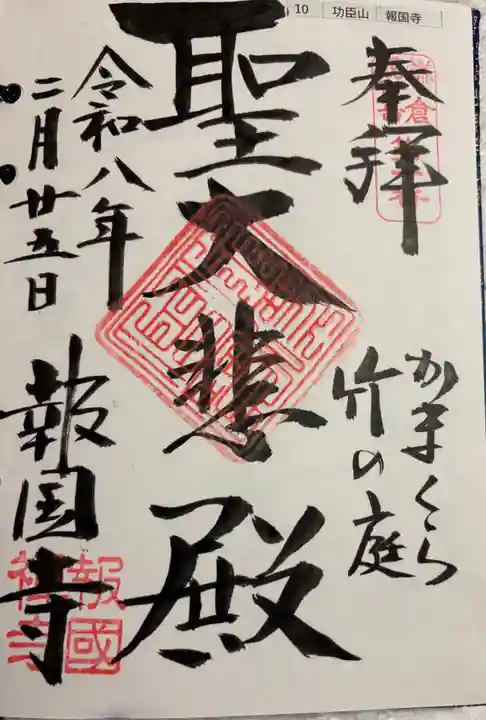 10 功臣山 報国寺
奉拝
かまくら
竹の庭
聖大悲殿
令和八年
二月廿五日
報国寺